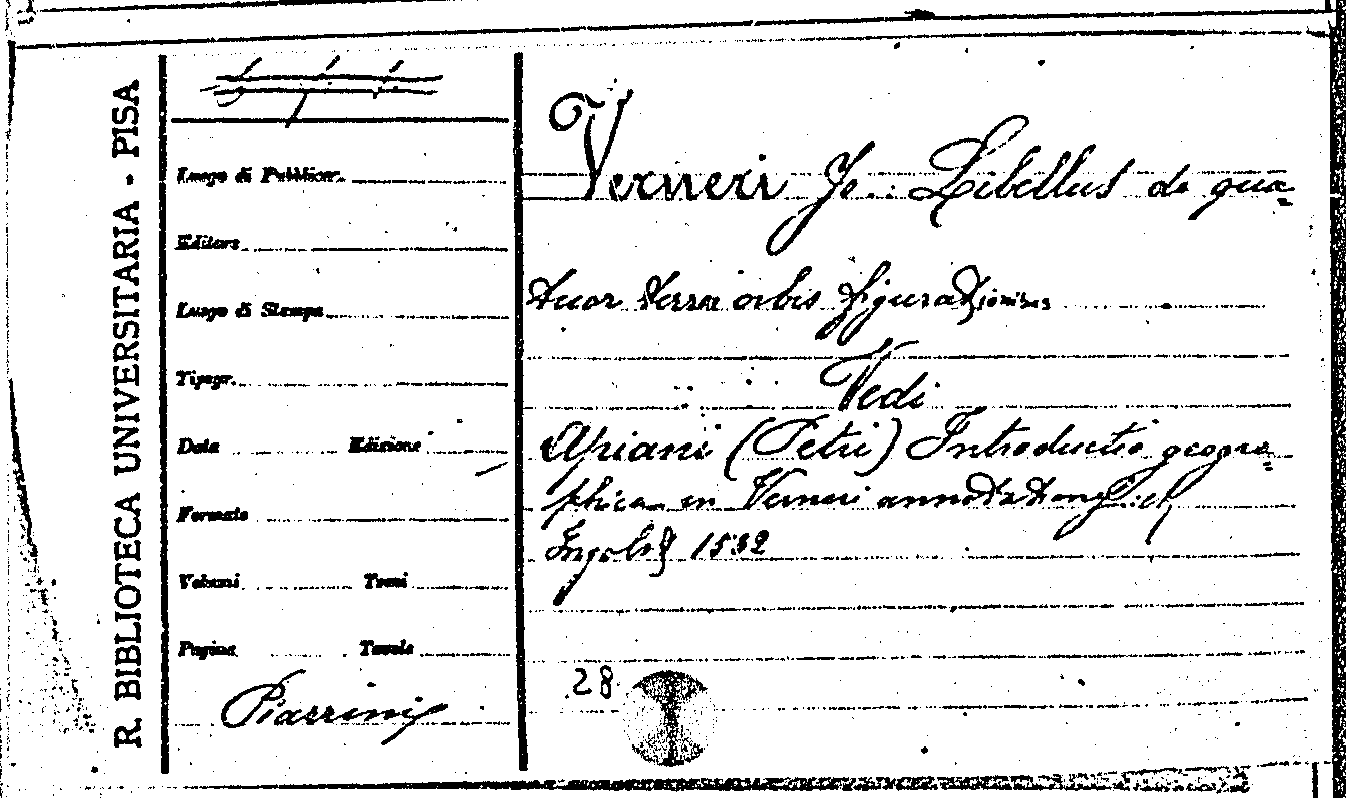 R. BIBLIOTECA UNIVERSITARIA - PISA
Luogo di Pubblicaz.
Editore
Luogo di Stampa
Tipogr.
Data Edizione
Formato
Volumi Tomi
Pagine Tavole
Piarrini
Verneri Jo. Libellus de qua=
tuor terrae orbis figurationibus
Vedi
Apiani (Petri) Introductio geogra=
phica in Verneri annotationes
Ingolst 1532
28